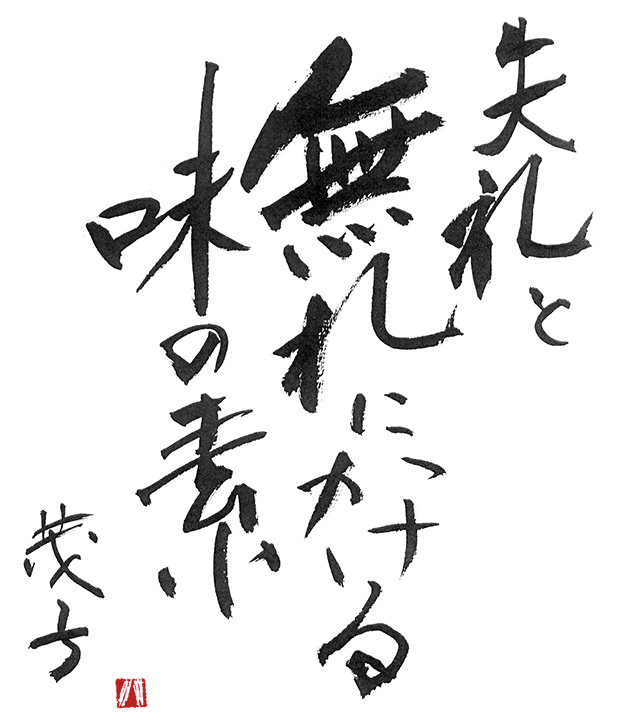 失礼と
無礼にかける
味の素
茂方